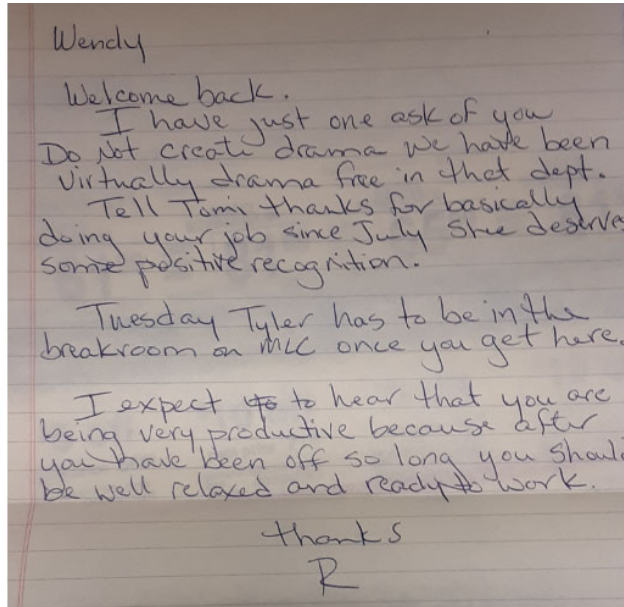 Wendy
Welcome back.
I have just one ask of you
Do Not create drama we have been
virtually drama free in that dept.
Tell Tomi thanks for basically
doing your job since July She deserves
some positive recognition.
Tuesday Tyler has to be in the
breakroom on MLC once you get here.
I expect to to hear that you are
being very productive because after
you have been off so long you should
be well relaxed and ready to work.
thanks
R